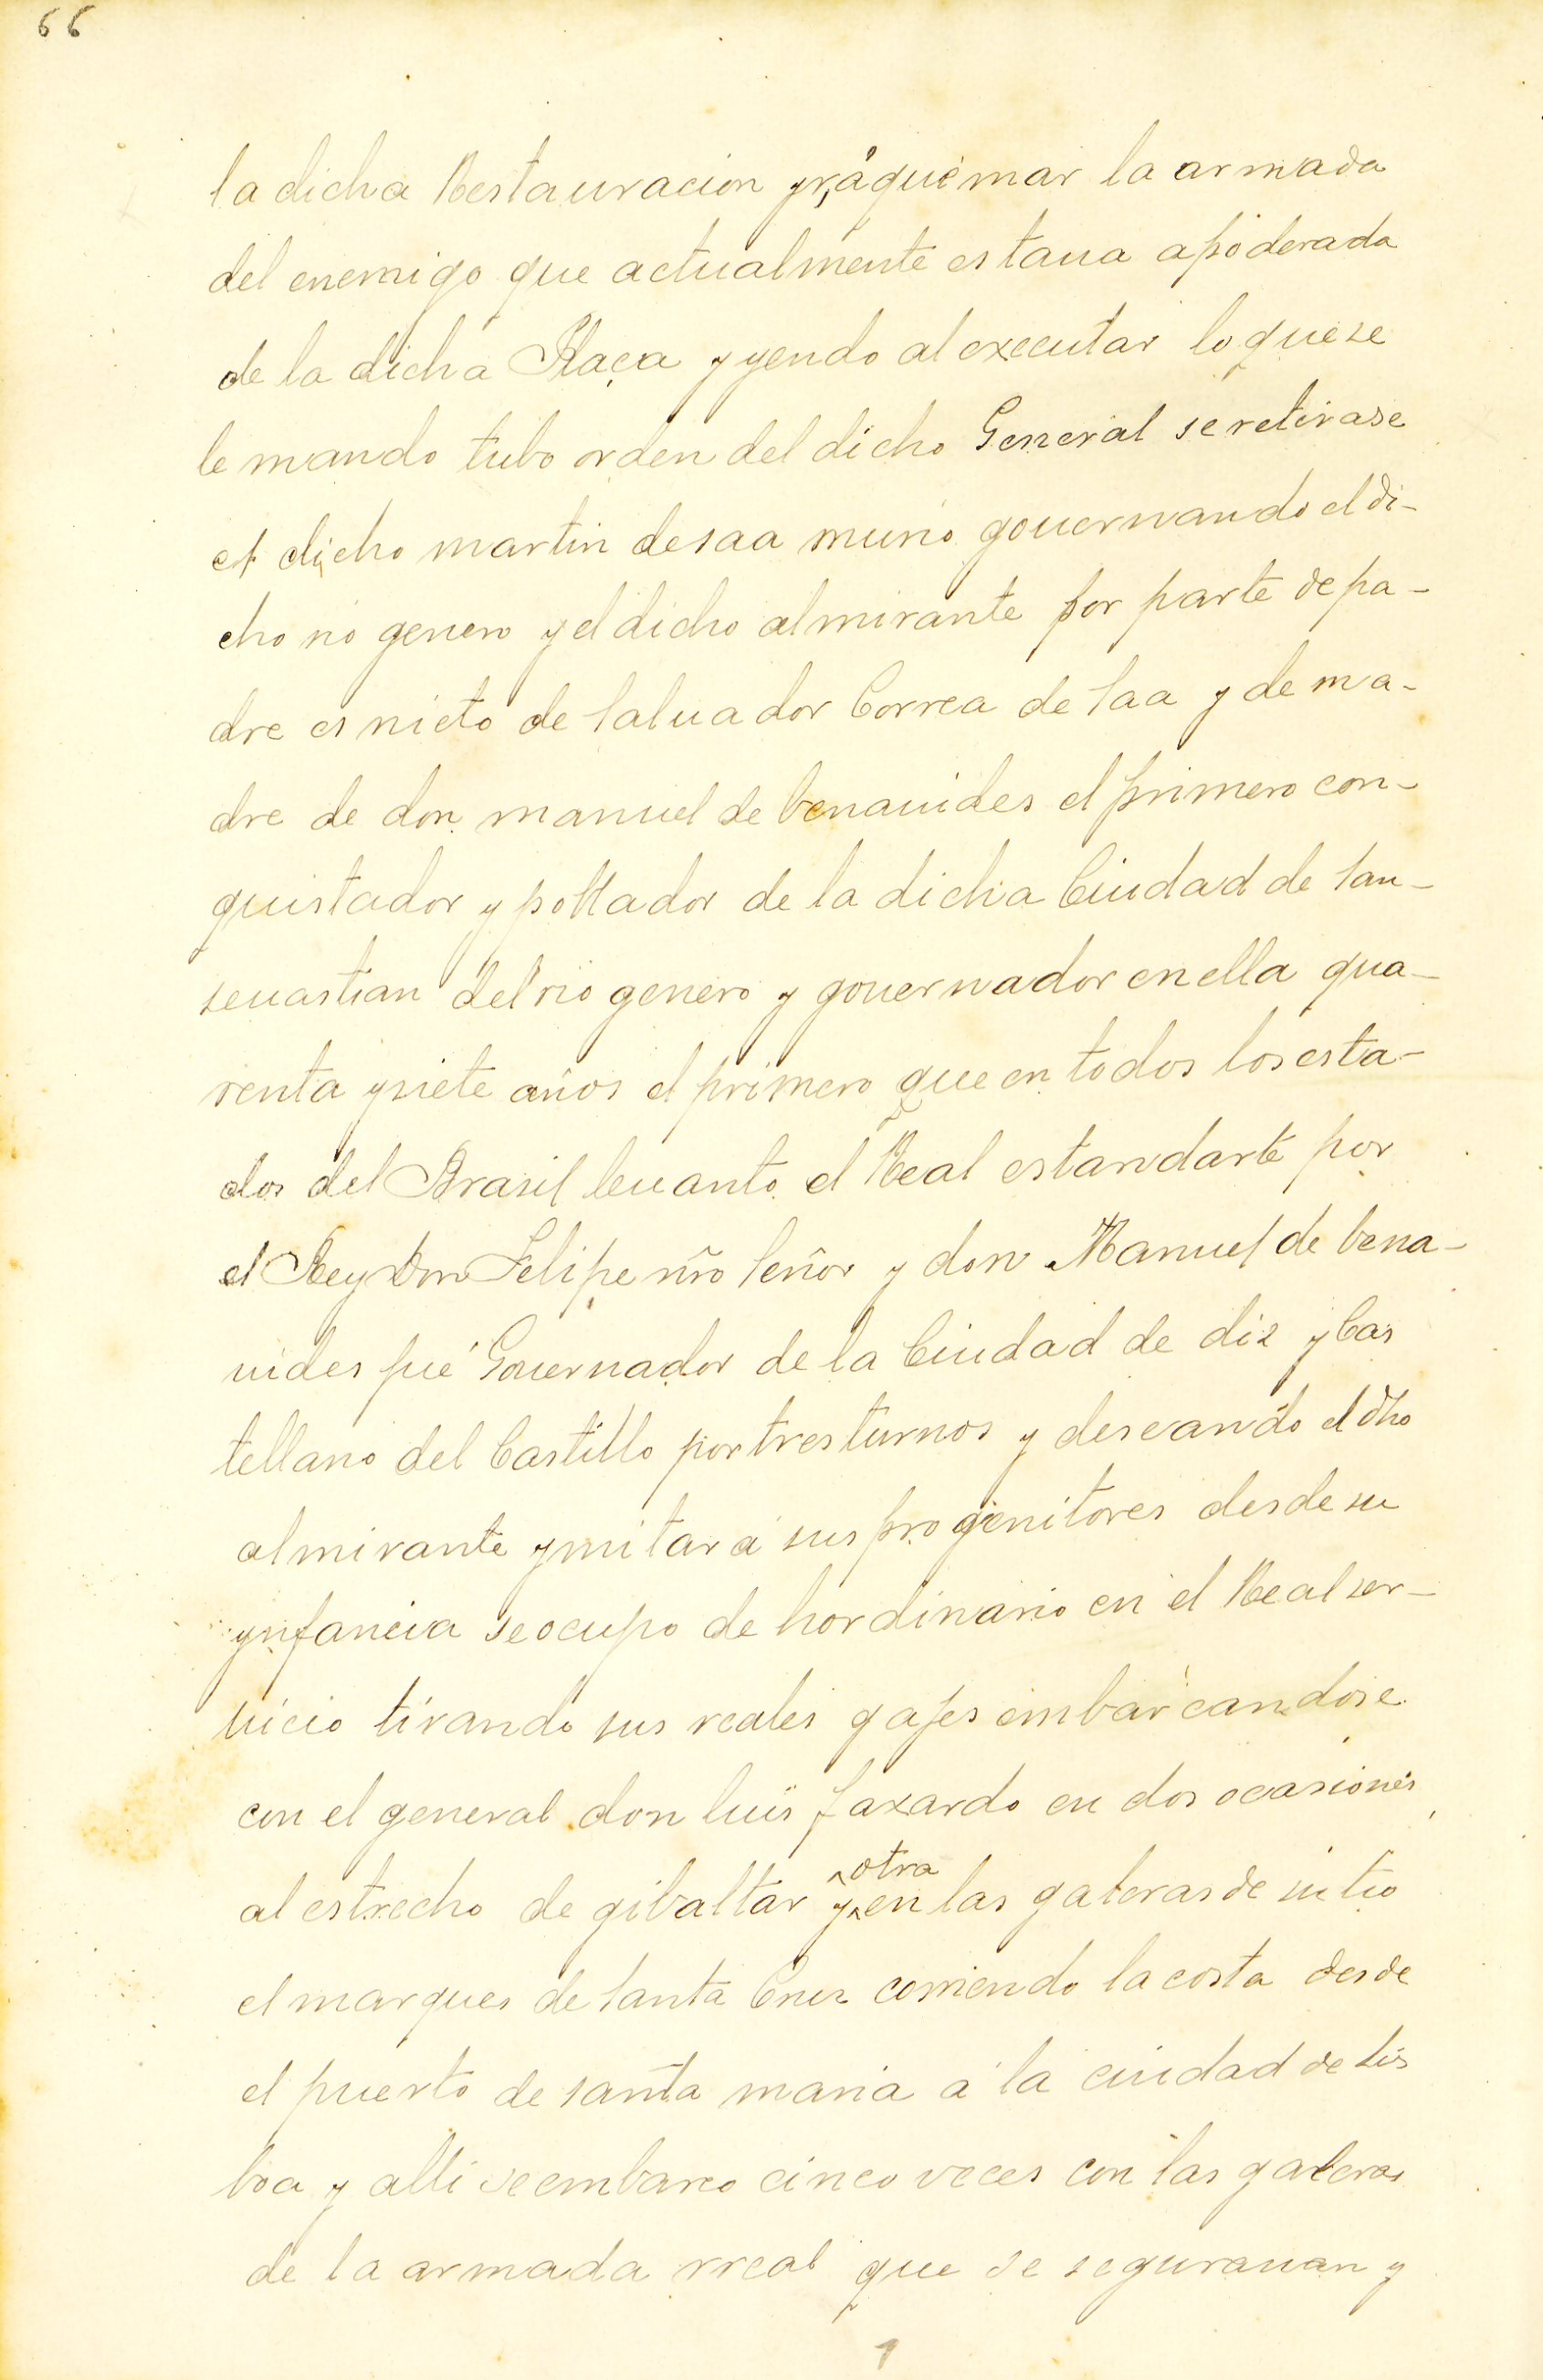 66
la dicha Restauracion yr, á quemar la armada
del enemigo que actualmente estaua apoderada
de la dicha Plaça y yendo al executar lo que se
le mando tubo orden del dicho General se retirase
el dicho martin de saa murio gouernando el di-
cho rio genero y el dicho almirante por parte de pa-
dre es nieto de saluador Correa de saa y de ma-
dre de don manuel de benauides el primero con-
quistador y pollador de la dicha Ciudad de san-
seuastian del rio genero y gouernador en ella qua-
renta y siete años el primero que en todos los esta-
dos del Brasil leuanto el Real estandarte por
el Rey Don Felipe nrõ señor y don Manuel de bena-
uides fue Gouernador de la Ciudad de diz y Cas
tellano del Castillo por tres turnos y deseando el dho
almirante ymitar á sus progenitores desde su
ynfancia se ocupo de hordinario en el Real ser-
uicio tirando sus reales gajes embarcandose
con el general don luis faxardo en dos ocasiones
al estrecho de gibaltar y otra en las galeras de su tio
el marques de santa Cruz corriendo la costa desde
el puerto de santa maria á la ciudad de lis
boa y alli se embarco cinco veces con las galeras
de la armada rreal que se segurauan y
1